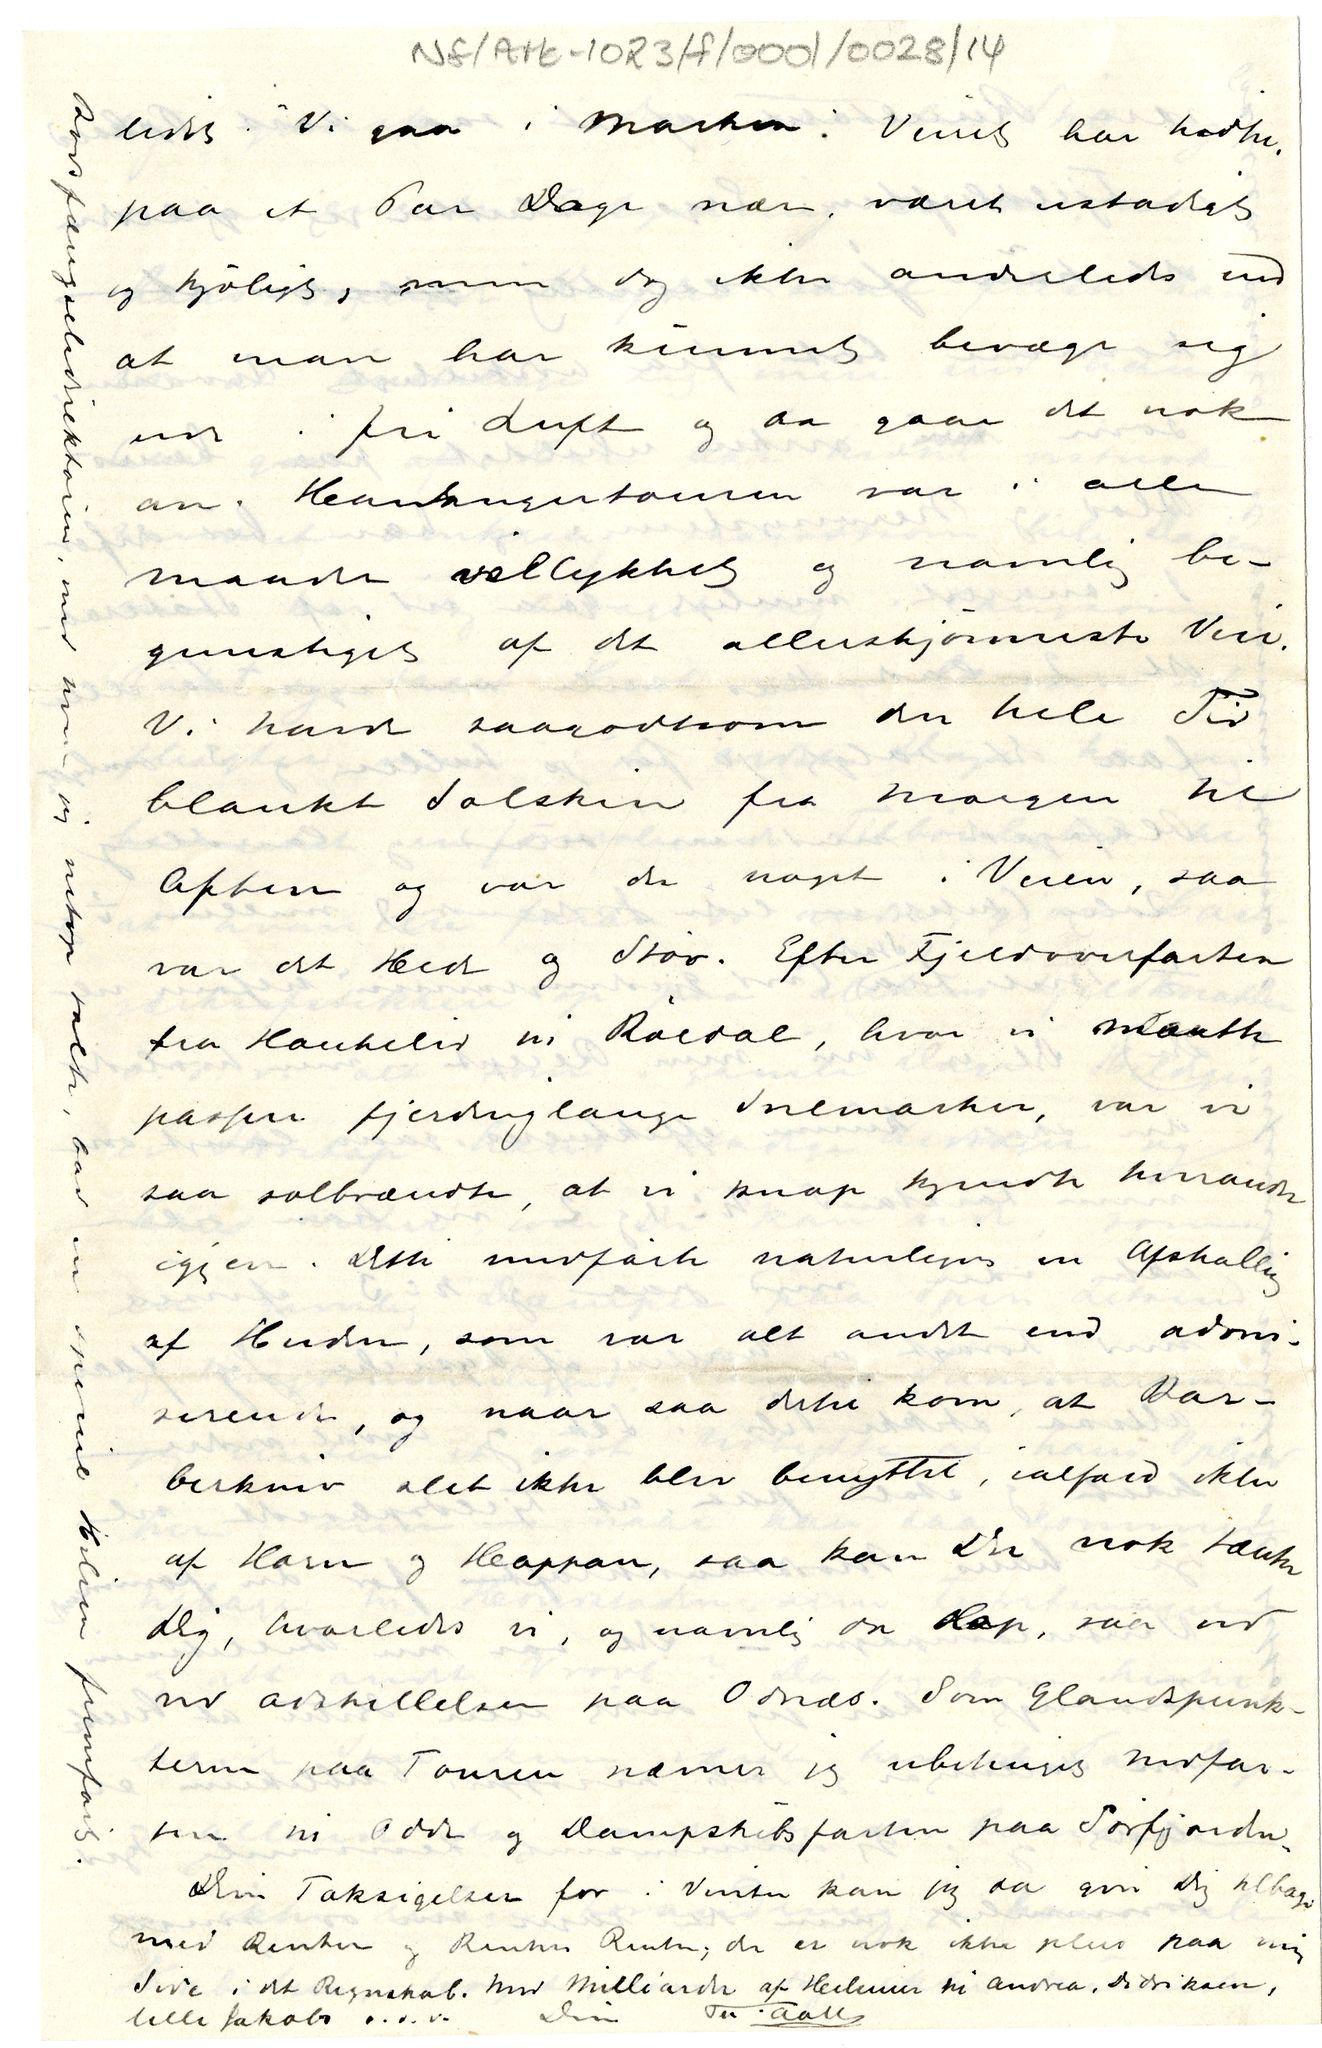 NF/Ark-1023/f/0001/0028/14
ledes. Vi gaa i Marken. Veiret har hidtil,
paa et Par Dage nær, været ustadigt
og kjøligt, men dog ikke anderledes end
at man har kunnet bevæge sig
ude i fri Luft og da gaar det nok
an. Hardangertouren var i alle
maader vellykket og navnlig be-
gunstiget af det allerskjønneste Veir.
Vi havde saagodtsom den hele Tid
blankt Solskin fra Morgen til
Aften og var der noget i Veien, saa
var det Hede og Støv. Efter Fjeldoverfarten
fra Haukelid til Røldal, hvor vi maatte
passere fjerdinglange Snemarker, var vi
saa solbrændte, at vi knap kjendte hinanden
igjen. Dette medførte naturligvis en Afskalling
af Huden, som var alt andet end adoni-
serende, og naar saa dertil kom, at Bar-
berkniv slet ikke blev benyttet, ialfald ikke
af Horn og Heappan, saa kan Du nok tænke
Dig, hvorledes vi, og navnlig de, saa ud
ved adskillelsen paa Odnæs. Som Glandspunk-
terne paa Touren nævner jeg ubetinget Nedfar-
ten til Odde og Dampskibsfarten paa Sørfjorden.
Din Taksigelse for i Vinter kan jeg da give Dig tilbage
med Renter og Renters Rente; der er nok ikke plus paa min
Side i det Regnskab. Med Milliarder af Hilsener til Andrea, Didriksen,
lille Jakob o.s.v. Din Aall
Bodsfængselsdirektøren, med hvem jeg netop talte, bad en speciel Hilsen fremført.